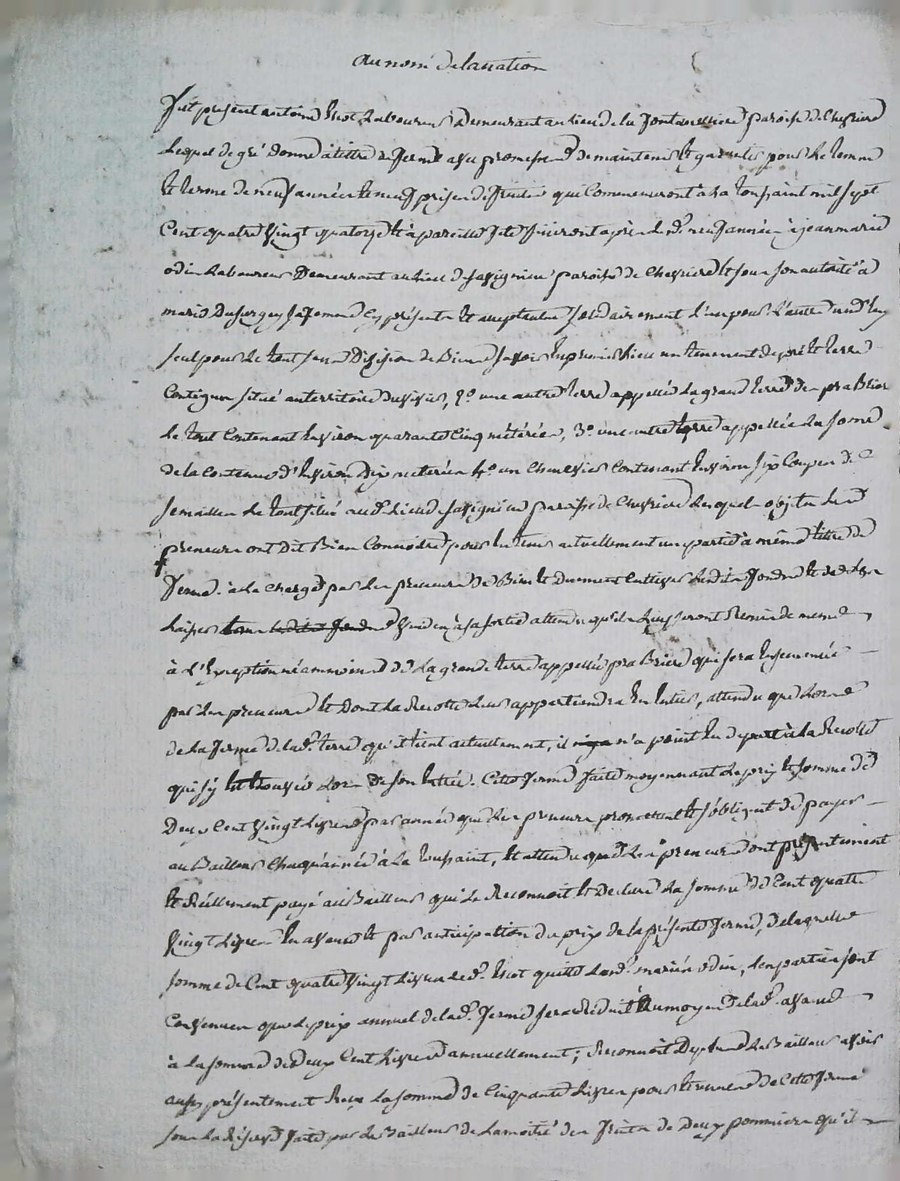 au nom de la nation
Fut présent antoine laboureur Demeurant au lieu de la paroisse de Chevrière
Lequel de gré donne à titre de ferme avec promesse de maintenir et garentir pour le temme
et terme de neuf années et neuf prises de fruits qui Commenceront à la toussaint mil sept
Cent quatre Vingt quatorze et à pareille fete finiront après led. neuf années à jean marie
odin Laboureur Demeurant au lieu de Savignieu paroisse de Chevriere et sous son autorité à
marie sa femme Cy présents et acceptants solidairement l'un pour l'autre un d'eux
seul pour le tout sans Division de Biens savoir En premier lieu un tenement de pré et terre
Contigus situé au territoire 2° une autre terre appellée La grand terre de pra Brier
le tout Contenant Environ quarante Cinq métérées, 3° une autre terre appellée
de la Contenue d'Environ Dix meterées 4° un Chenevier Contenant Environ six Coupes de
semailles Le tout situé aud. Lieu de Savignieu paroisse de Chevriere Lesquels objets Les d.
preneurs ont Dit Bien Connoitre pour En tenir actuellement une partie à même titre de
ferme. à la Charge par Les preneurs de Bien et Duement Cultiver Lesdits fonds et de Les
laisser vuides à sa sortie attendu qu'il Les ont Recus de meme
à L'Exception néammoins de La grande terre appellée pra Briere qui sera Ensemencée
par Les preneurs et Dont La Recolte Leur appartiendra En Entier, attendu que Lors
de La ferme de lad. terre qu'il tient actuellement, il n'a point Eu de part à La Recolte
qui s'y Est trouvée Lors De son Entrée. Cette ferme faite moyennant Le prix et somme de
Deux Cent Vingt Livres par année que Les preneurs promettent et s'obligent de payer
au Bailleur Chaque année à La toussaint, Et attendu que Les d. preneurs ont présentement
et Réellement payé au Bailleur qui Le Reconnoit et Declare La somme de Cent quatre
Vingt Livres En avance et par anticipation du prix de la présente ferme, de laquelle
somme de Cent quatre Vingt Livres led. quitte Lesd. mariés odin, Les parties sont
Convenues que Le prix annuel de lad. ferme sera Réduit Au moyen De lad. avance
à la somme de Deux Cent Livres annuellement; Reconnoit De plus Le Bailleur avoir
aussy présentement Reçu La somme de Cinquante Livres pour Etrennes de Cette ferme
sous La Réserve faite par Le Bailleur de La moitié des fruits de Deux pommiers qu'il